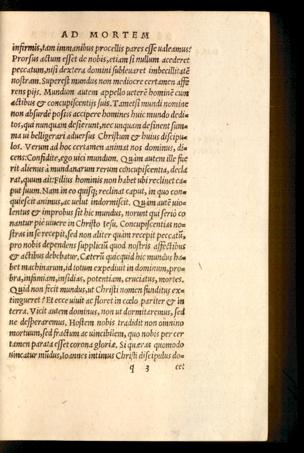 AD MORTEM
infirmis, tam immanibus procellis pares esse ualeamus?
Prorsus actum esset de nobis, etiam si nullum accederet
peccatum, nisi dextera domini subleuaret imbecillitatē
nostram. Superest mundus non mediocre certamen affe
rens pijs. Mundum autem appello ueterē hominē cum
actibus & concupiscentijs suis. Tametsi mundi nomine
non absurdè possis accipere homines huic mundo dedi-
tos, qui nunquam desierunt, nec unquam desinent sum-
ma ui belligerari aduersus Christum & huius discipu-
los. Verum ad hoc certamen animat nos dominus, di-
cens: Confidite, ego uici mundum. Quàm autem ille fue
rit alienus à mundanarum rerum concupiscentia, decla
rat, quum ait: Filius hominis non habet ubi reclinet ca-
put suum. Nam in eo quisq; reclinat caput, in quo con-
quiescit animus, ac uelut indormiscit. Quàm autē uio-
lentus & improbus sit hic mundus, norunt qui seriò co
nantur piè uiuere in Christo Iesu. Concupiscentias no-
stras in se recepit, sed non aliter quàm recepit peccatū,
pro nobis dependens suppliciū quod nostris affectibus
& actibus debebatur. Caeterū quicquid hic mundus ha-
bet machinarum, id totum expediuit in dominum, pro-
bra, infamiam, insidias, potentiam, cruciatus, mortes.
Quid non fecit mundus, ut Christi nomen funditus ex-
tingueret? Et ecce uiuit ac floret in coelo pariter & in
terra. Vicit autem dominus, non ut dormitaremus, sed
ne desperaremus. Hostem nobis tradidit non omnino
mortuum, sed fractum ac uincibilem, quo nobis per cer
tamen parata esset corona gloriae. Si quaeras quomodo
uincatur mūdus, Ioannes intimus Christi discipulus do-
q 3 cet